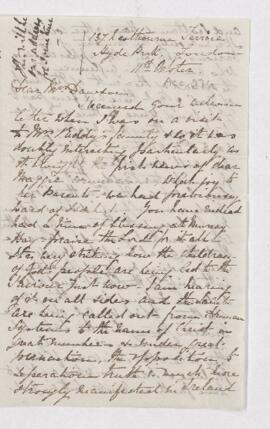 this will be
my address
for some time
137 Westbourne Terrace
Hyde Park, London
Dear Mrs Dawson
Received your welcome
letter when I was on a visit
to Mrs Eddy's family & so it was
doubly interesting particularly as
it brought the first news of dear
Maggie
her Parents - we had previously
heard of
You have indeed
had a time of blessing at Murray
Bay - praise the Lord for it all
It is very striking how the children
of God's people are being led to the
Saviour just now - I am hearing
of it on all sides and the saints
are being called out from human
systems to the name of Christ in
great numbers & under great
persecution, the opposition to
separation truth is much more
strongly manifested in Ireland